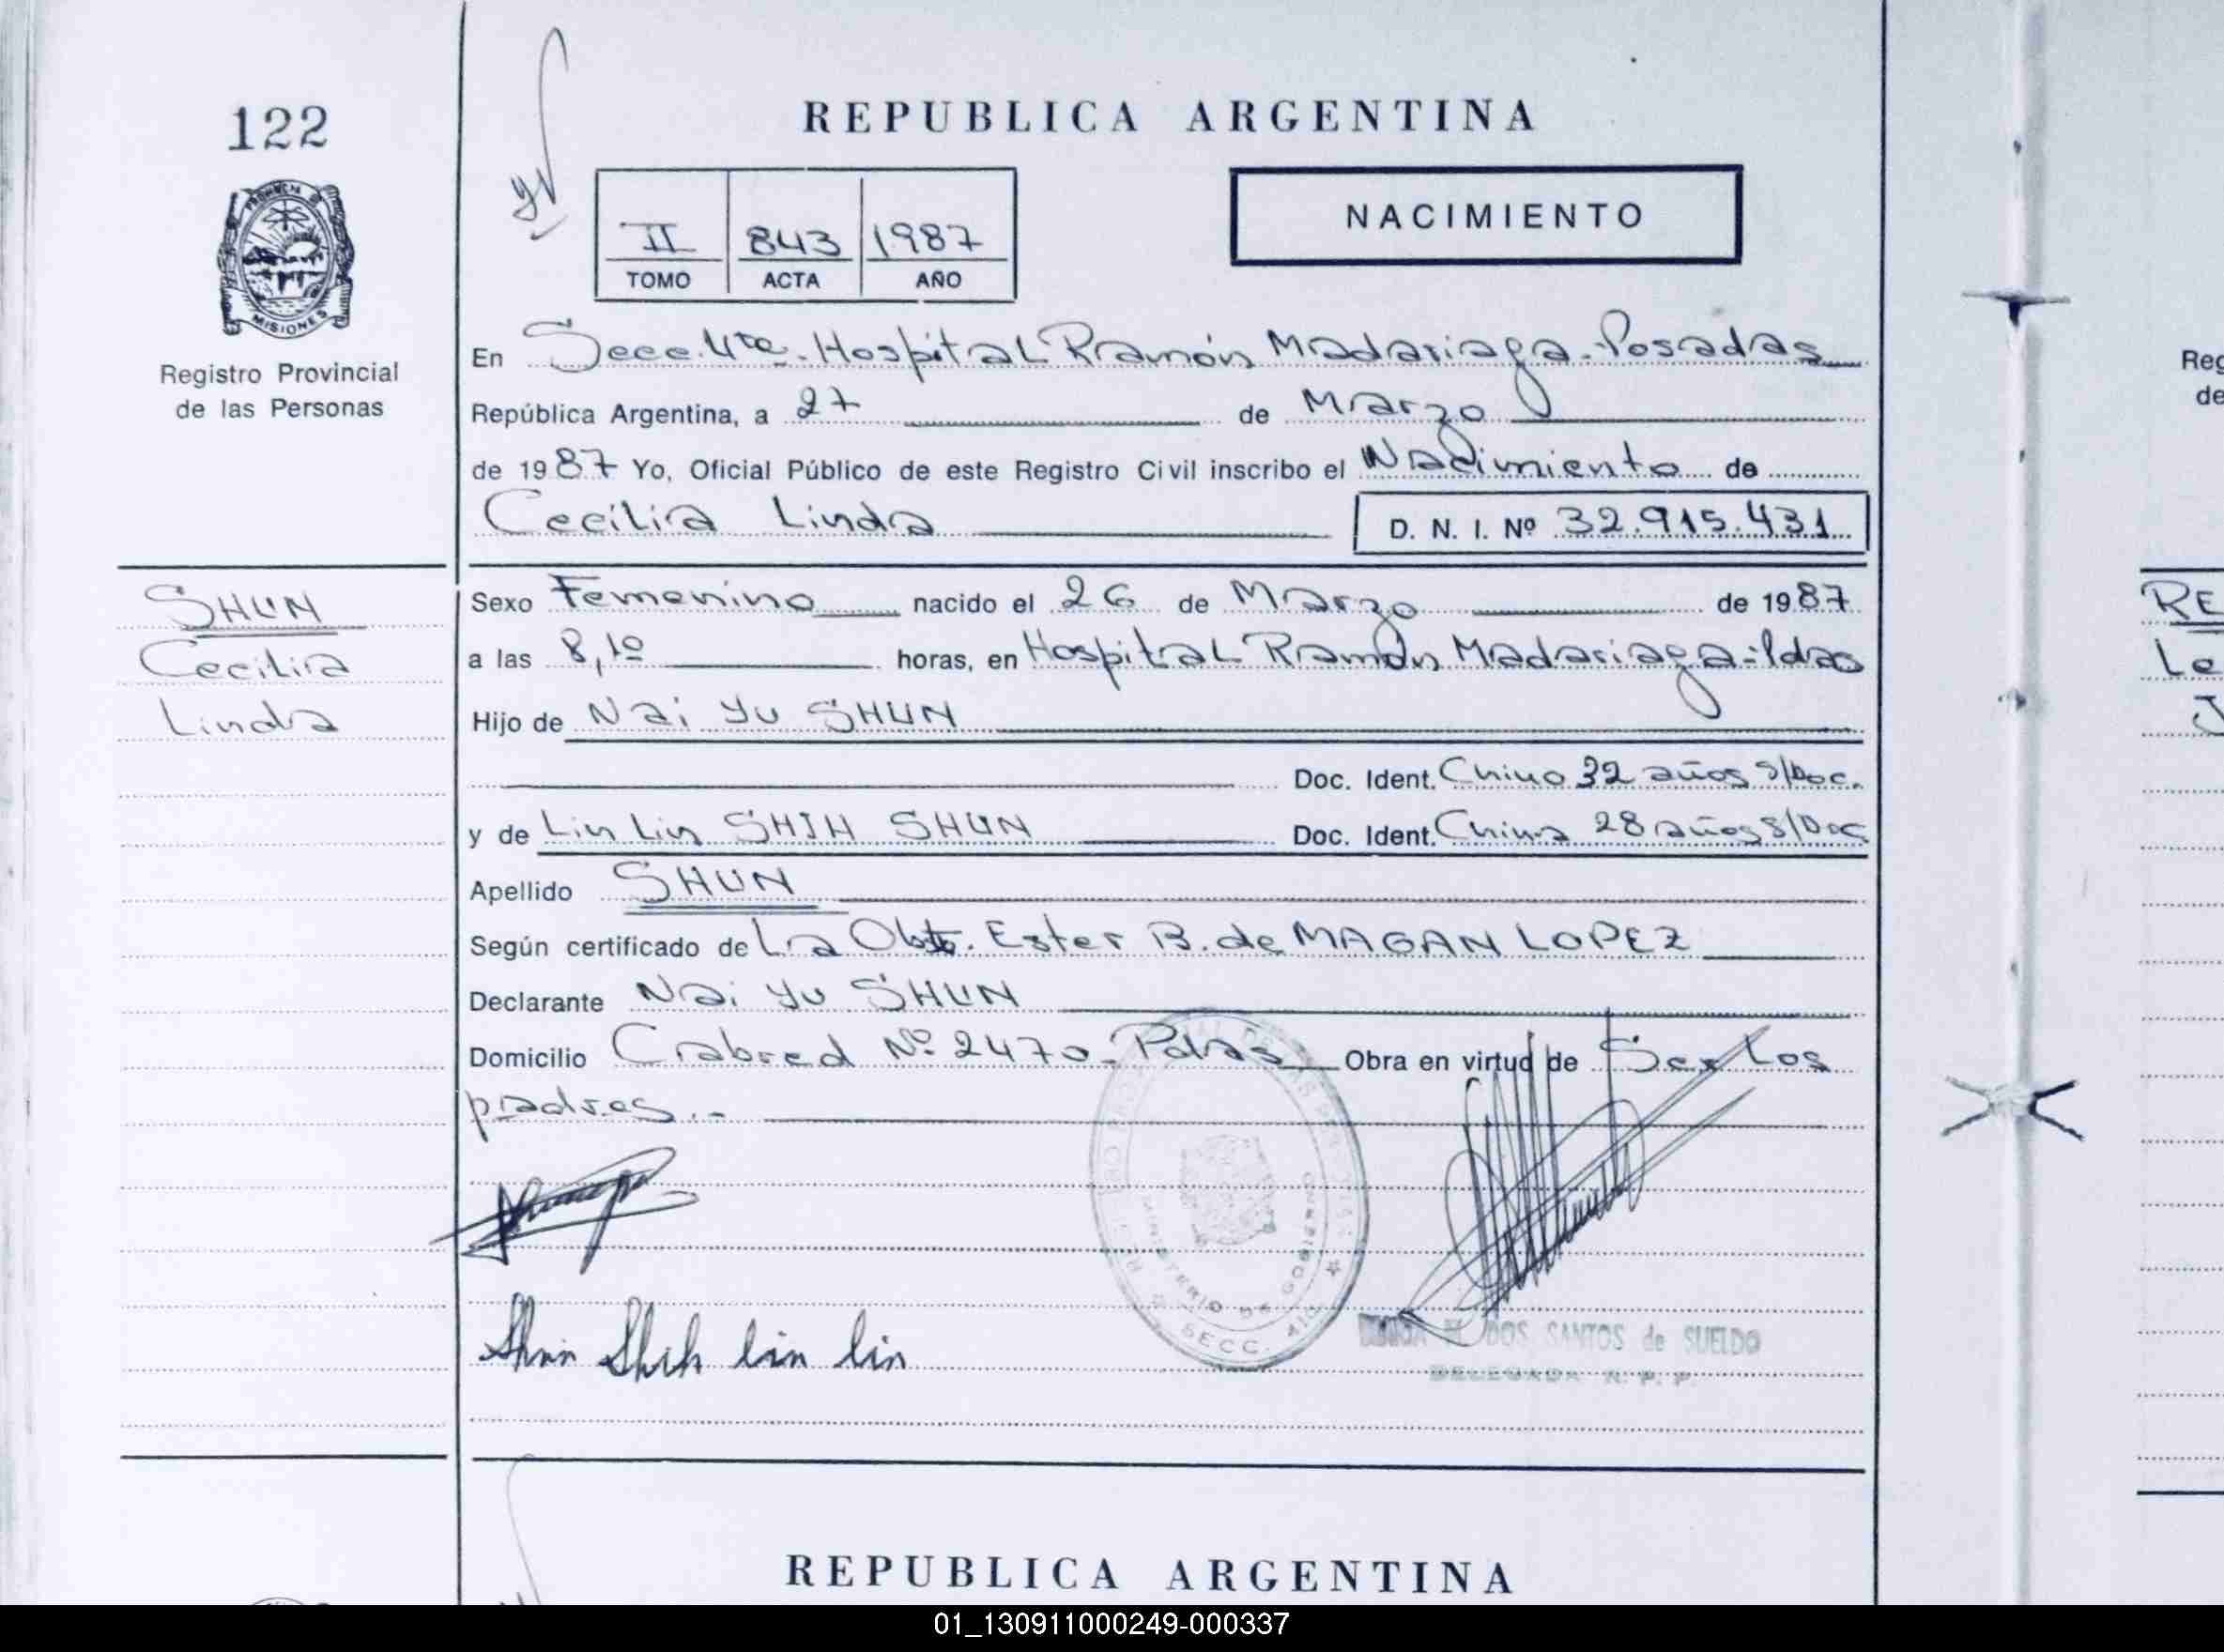 122
REPUBLICA ARGENTINA
PROVINCIA
MISIONES
Registro Provincial
de las Personas
II 843 1987
TOMO ACTA AÑO
NACIMIENTO
En Secc. 4ta. Hospital Ramón Madariaga - Posadas
República Argentina, a 27 de Marzo
de 1987 Yo, Oficial Público de este Registro Civil inscribo el Nacimiento de
Cecilia Linda D. N. I. Nº 32.915.431
SHUN
Cecilia
Linda
Sexo Femenino nacido el 26 de Marzo de 1987
a las 8,10 horas, en Hospital Ramón Madariaga - Pdas
Hijo de Nai Yu SHUN
Doc. Ident. Chino 32 años S/Doc.
y de Lin Lin SHIH SHUN Doc. Ident. China 28 años S/Doc
Apellido SHUN
Según certificado de La Obst. Ester B. de MAGAN LOPEZ
Declarante Nai Yu SHUN
Domicilio Cabred Nº 2470 - Pdas Obra en virtud de Ser los
padres.-
MINISTERIO DE GOBIERNO
SECC. 4ta
Shun Shih lin lin
DOS SANTOS de SUELDO
DELEGADA R. P. P.
REPUBLICA ARGENTINA
Reg
de
RE
Le
J
01_130911000249-000337